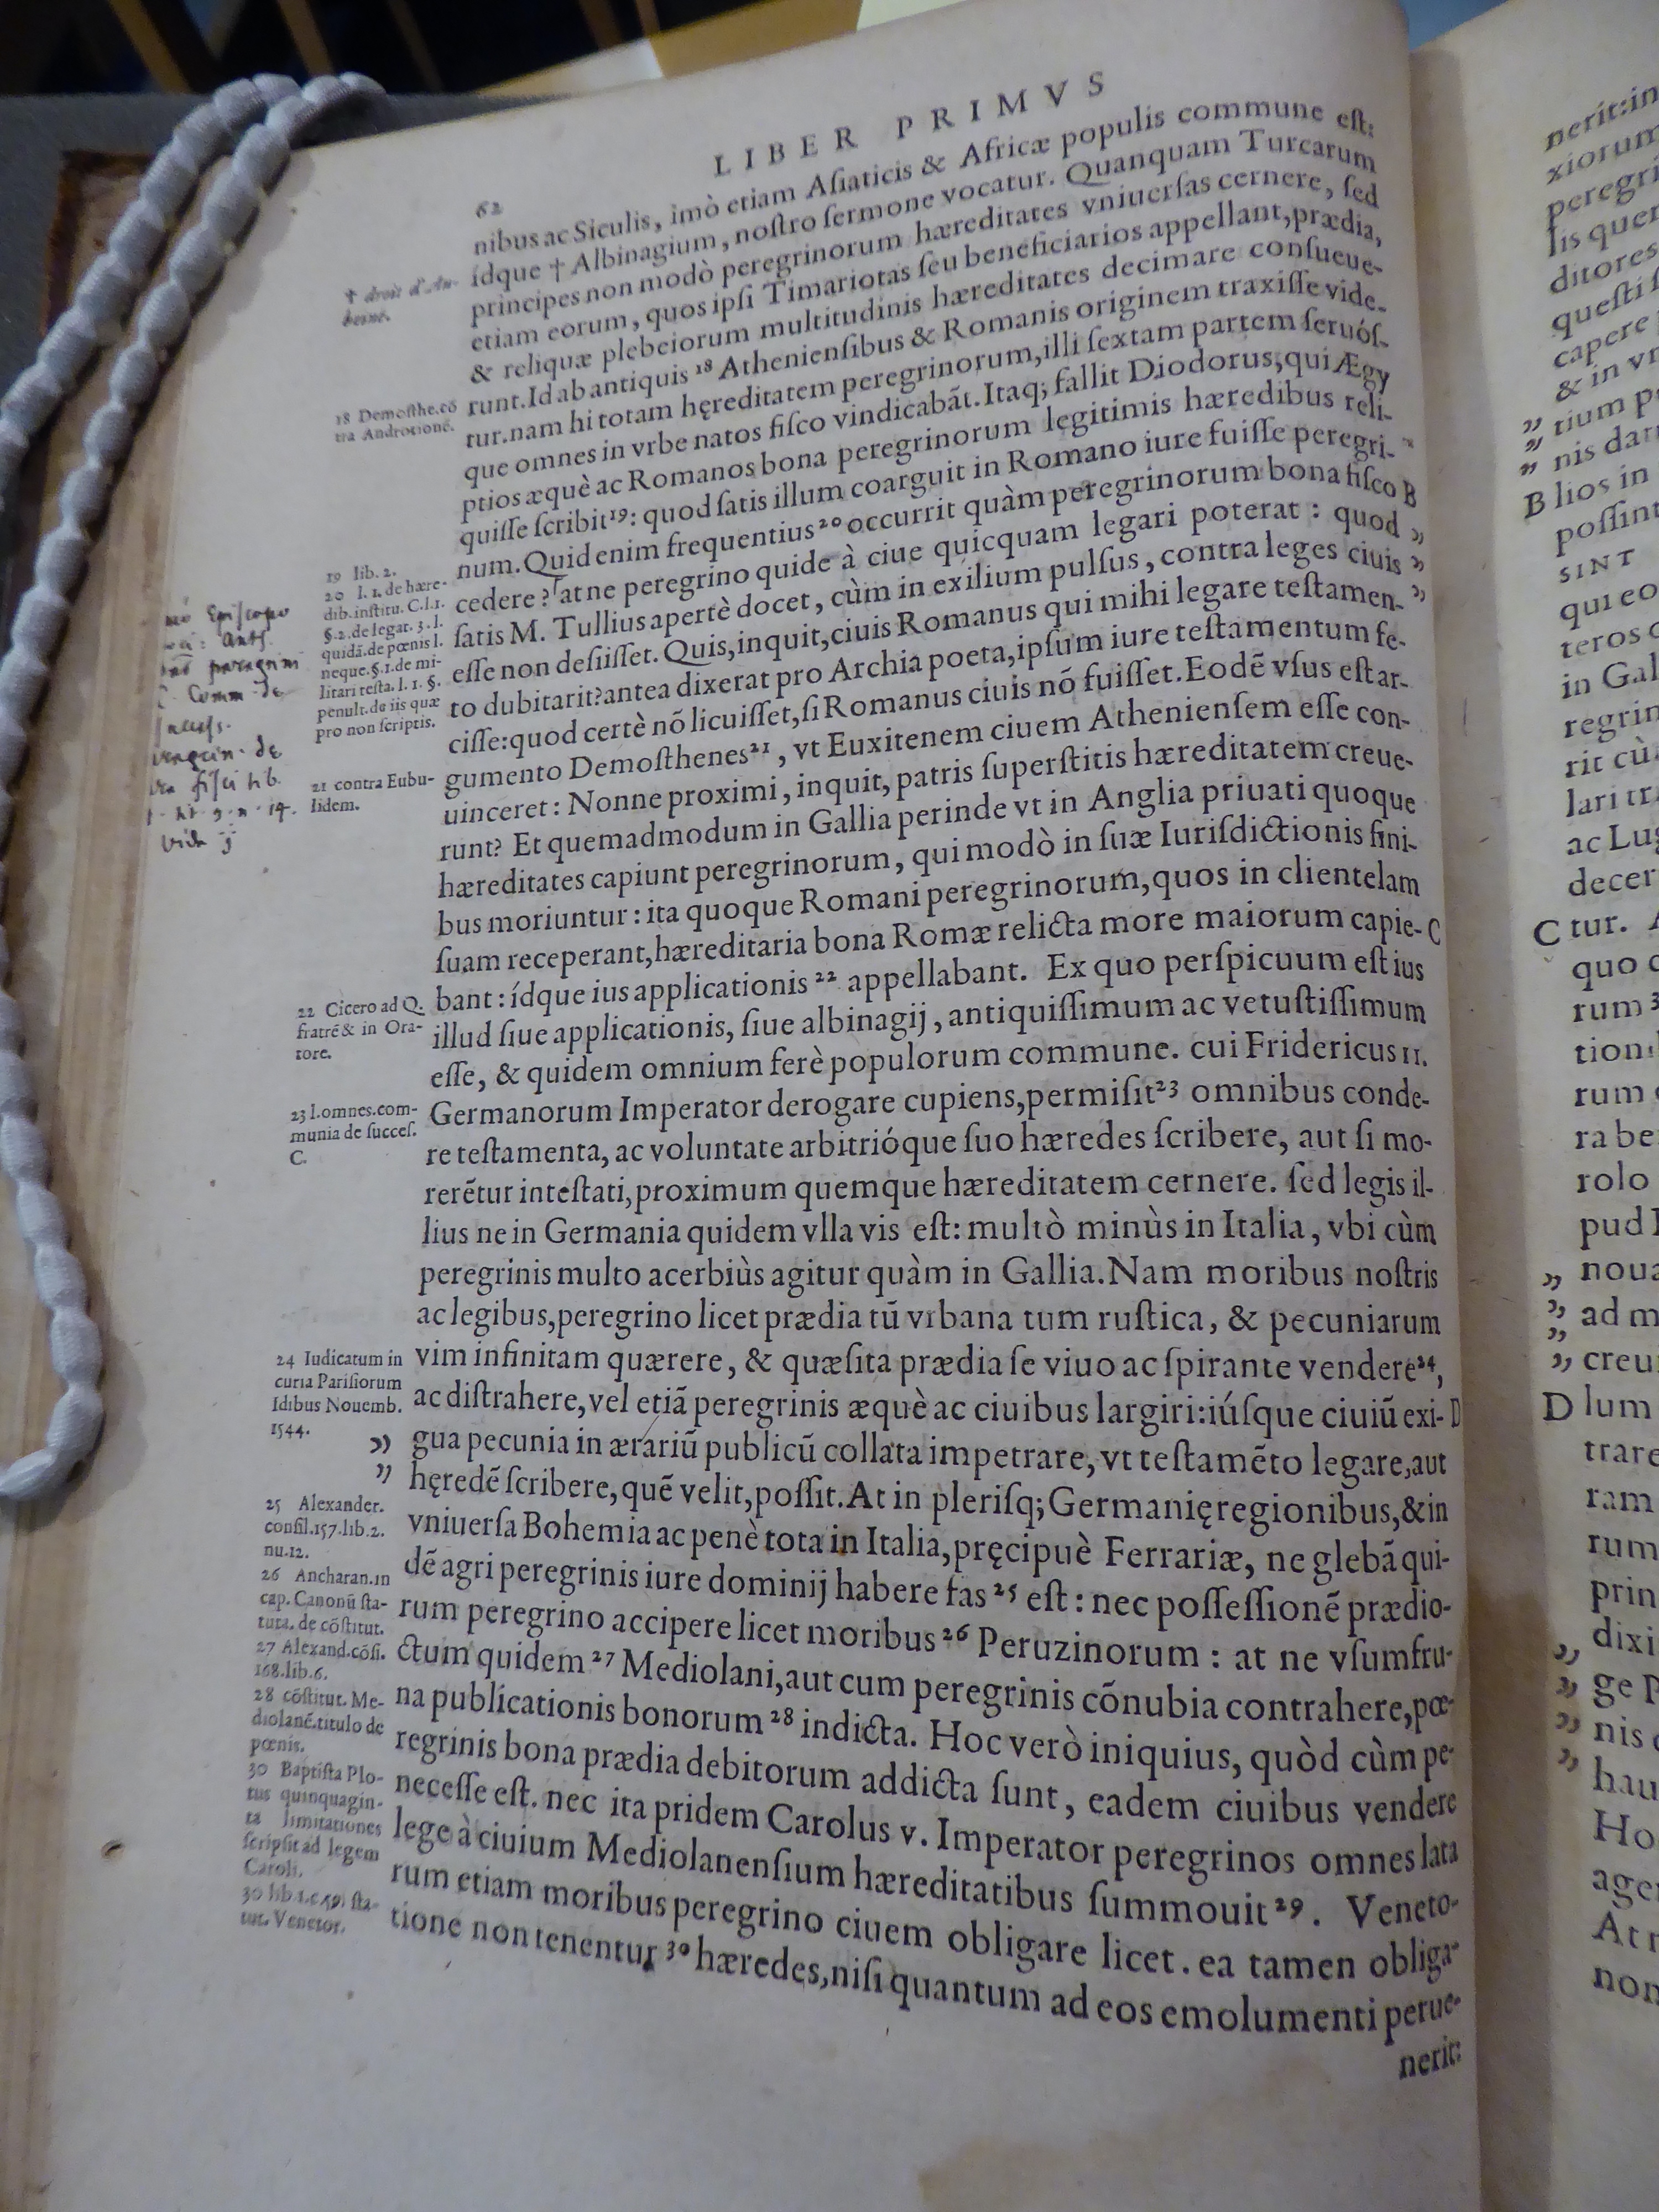 62
LIBER PRIMVS
nibus ac Siculis, imò etiam Asiaticis & Africæ populis commune est:
ídque † Albinagium, nostro sermone vocatur. Quanquam Turcarum
principes non modò peregrinorum hæreditates vniuersas cernere, sed
etiam eorum, quos ipsi Timariotas seu beneficiarios appellant, prædia,
& reliquæ plebeiorum multitudinis hæreditates decimare consueue-
runt. Id ab antiquis ¹⁸ Atheniensibus & Romanis originem traxisse vide-
tur. nam hi totam hęreditatem peregrinorum, illi sextam partem seruós-
que omnes in vrbe natos fisco vindicabāt. Itaq; fallit Diodorus, qui Ægy
ptios æquè ac Romanos bona peregrinorum legitimis hæredibus reli-
quisse scribit¹⁹: quod satis illum coarguit in Romano iure fuisse peregri-
num. Quid enim frequentius²⁰ occurrit quàm peregrinorum bona fisco B
cedere? at ne peregrino quide à ciue quicquam legari poterat : quod „
satis M. Tullius apertè docet, cùm in exilium pulsus, contra leges ciuis „
esse non desiisset. Quis, inquit, ciuis Romanus qui mihi legare testamen- „
to dubitarit? antea dixerat pro Archia poeta, ipsum iure testamentum fe-
cisse: quod certè nõ licuisset, si Romanus ciuis nõ fuisset. Eodẽ vsus est ar-
gumento Demosthenes²¹, vt Euxitenem ciuem Atheniensem esse con-
uinceret: Nonne proximi, inquit, patris superstitis hæreditatem creue-
runt? Et quemadmodum in Gallia perinde vt in Anglia priuati quoque
hæreditates capiunt peregrinorum, qui modò in suæ Iurisdictionis fini-
bus moriuntur: ita quoque Romani peregrinorum, quos in clientelam
suam receperant, hæreditaria bona Romæ relicta more maiorum capie- C
bant: ídque ius applicationis ²² appellabant. Ex quo perspicuum est ius
illud siue applicationis, siue albinagij, antiquissimum ac vetustissimum
esse, & quidem omnium ferè populorum commune. cui Fridericus II.
Germanorum Imperator derogare cupiens, permisit²³ omnibus conde-
re testamenta, ac voluntate arbitrióque suo hæredes scribere, aut si mo-
rerẽtur intestati, proximum quemque hæreditatem cernere. sed legis il-
lius ne in Germania quidem vlla vis est: multò minùs in Italia, vbi cùm
peregrinis multo acerbiùs agitur quàm in Gallia. Nam moribus nostris
ac legibus, peregrino licet prædia tū vrbana tum rustica, & pecuniarum
vim infinitam quærere, & quæsita prædia se viuo ac spirante vendere²⁴,
ac distrahere, vel etiã peregrinis æquè ac ciuibus largiri: iúsque ciuiū exi- D
„ gua pecunia in ærariū publicū collata impetrare, vt testamẽto legare, aut
„ hęredẽ scribere, quẽ velit, possit. At in plerisq; Germanię regionibus, & in
vniuersa Bohemia ac penè tota in Italia, pręcipuè Ferrariæ, ne glebã qui-
dẽ agri peregrinis iure dominij habere fas ²⁵ est: nec possessionẽ prædio-
rum peregrino accipere licet moribus ²⁶ Peruzinorum : at ne vsumfru-
ctum quidem ²⁷ Mediolani, aut cum peregrinis cõnubia contrahere, pœ-
na publicationis bonorum ²⁸ indicta. Hoc verò iniquius, quòd cùm pe-
regrinis bona prædia debitorum addicta sunt, eadem ciuibus vendere
necesse est. nec ita pridem Carolus v. Imperator peregrinos omnes lata
lege à ciuium Mediolanensium hæreditatibus summouit ²⁹. Veneto-
rum etiam moribus peregrino ciuem obligare licet. ea tamen obliga-
tione non tenentur ³⁰ hæredes, nisi quantum ad eos emolumenti perue-
nerit:
† droit d'Au-
beine.
18 Demosthe. cõ
tra Androtionẽ.
19 lib. 2.
20 l. 1. de hære-
dib. institu. C. l. 1.
§. 2. de legat. 3. l.
quidã. de pœnis l.
neque. §. 1. de mi-
litari testa. l. 1. §.
penult. de iis quæ
pro non scriptis.
21 contra Eubu-
lidem.
22 Cicero ad Q.
fratrẽ & in Ora-
tore.
23 l. omnes. com-
munia de succes.
C.
24 Iudicatum in
curia Parisiorum
Idibus Nouemb.
1544.
25 Alexander.
consil. 157. lib. 2.
nu. 12.
26 Ancharan. in
cap. Canonū sta-
tuta. de cõstitut.
27 Alexand. cõsi.
168. lib. 6.
28 cõstitut. Me-
diolanẽ. titulo de
pœnis.
30 Baptista Plo-
tus quinquagin-
ta limitationes
scripsit ad legem
Caroli.
30 lib. 1. c. 49. sta-
tut. Venetor.
Episcopo
peregrini
Comm. de
de
fisci lib.
vide
nerit: in
xiorum
peregri
lis quer
ditores
questi
capere
& in vr
„ tium p
„ nis dar
B lios in
possint
SINT
qui eo
teros
in Gal
regrin
rit cù
lari tr
ac Lug
decer
C tur.
quo
rum
tion
rum
ra be
rolo
pud
„ noua
„ ad m
„ creu
D lum
trare
ram
rum
prin
„ dixi
„ ge p
„ nis
„ hau
Ho
age
At n
non